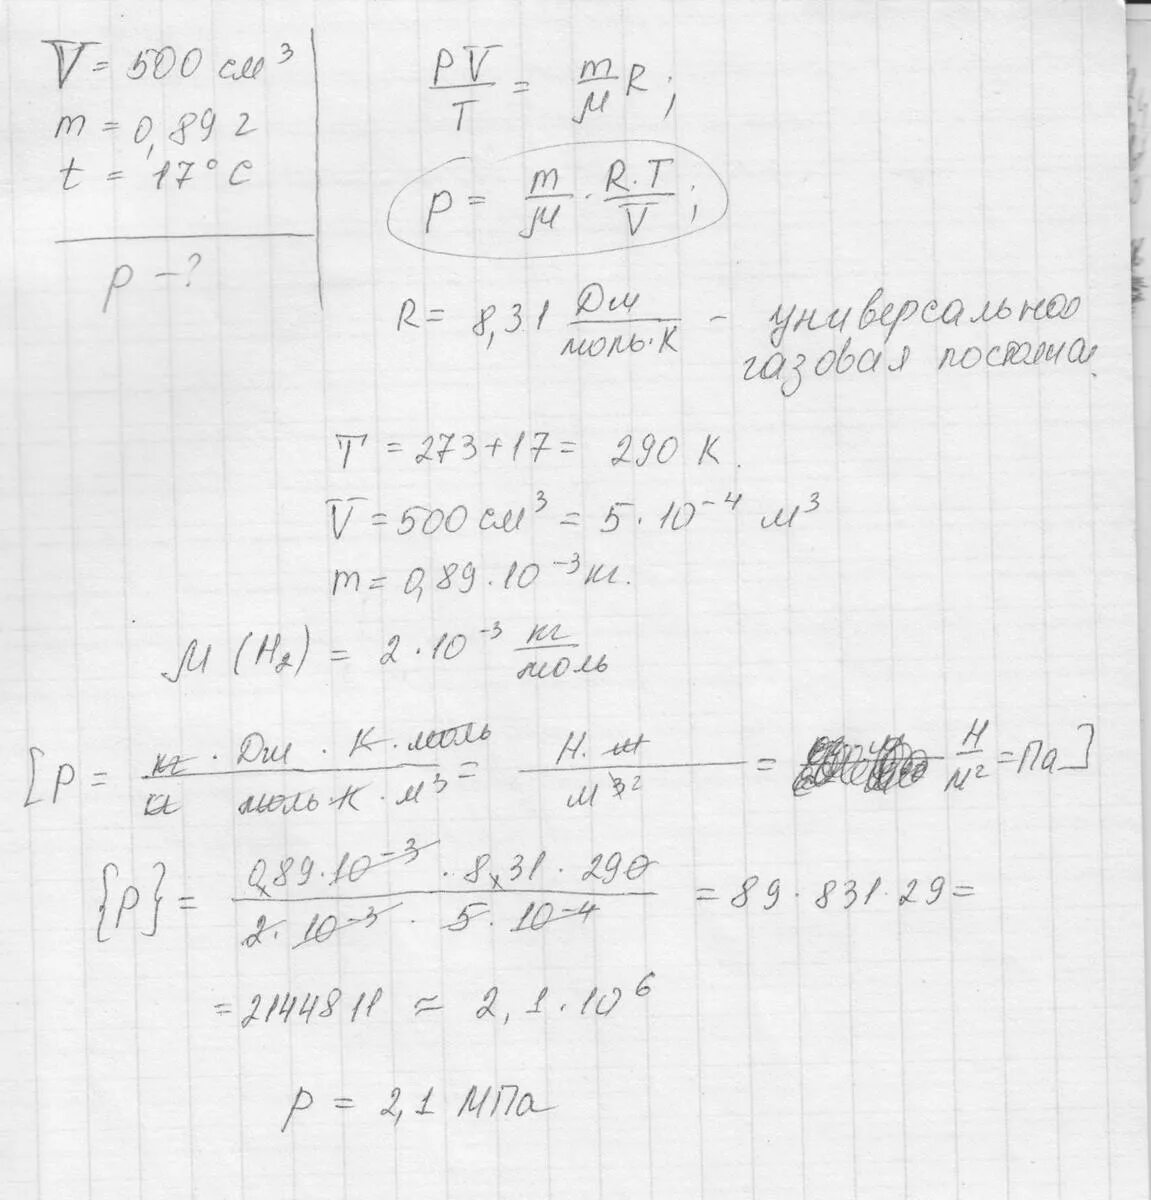 V = 500 см³
m = 0,89 г
t = 17° C
p - ?
PV/T = m/M R;
p = m/M · R·T/V;
R = 8,31 Дж/моль·К - универсальная
газовая постоянна.
T = 273 + 17 = 290 К.
V = 500 см³ = 5 · 10⁻⁴ м³
m = 0,89 · 10⁻³ кг.
M (H₂) = 2 · 10⁻³ кг/моль
[p = кг · Дж · К · моль / кг моль · К · м³ = Н · м / м³ ² = Н/м² = Па]
{p} = 0,89 · 10⁻³ · 8,31 · 290 / 2 · 10⁻³ · 5 · 10⁻⁴ = 89 · 831 · 29 =
= 2144811 ≈ 2,1 · 10⁶
p = 2,1 МПа